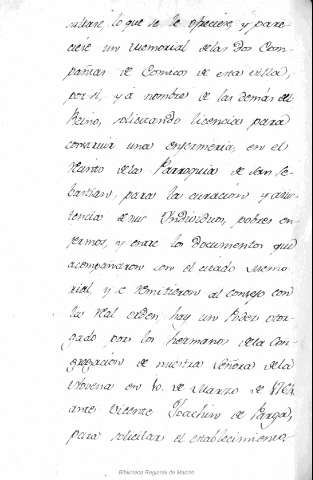 siere, lo que se le ofreciere, y pare
ciere un Memorial de las dos Com-
pañias de Comicos de esta villa,
por sí, y á nombre de las demás del
Reino, solicitando licencia para
construir una enfermeria, en el
recinto de la Parroquia de San Se-
bastian, para la curación y asis-
tencia de sus Individuos, pobres en-
fermos, y entre los documentos que
acompañaron con el citado Memo-
rial, y se remitieron al consejo con
la Real orden, hay un Poder otor-
gado por los hermanos de la Con-
gregacion de nuestra Señora de la
Novena en 10. de Marzo de
ante Vicente Joachin de Parga,
para solicitar el establecimiento
Biblioteca Regional de Madrid